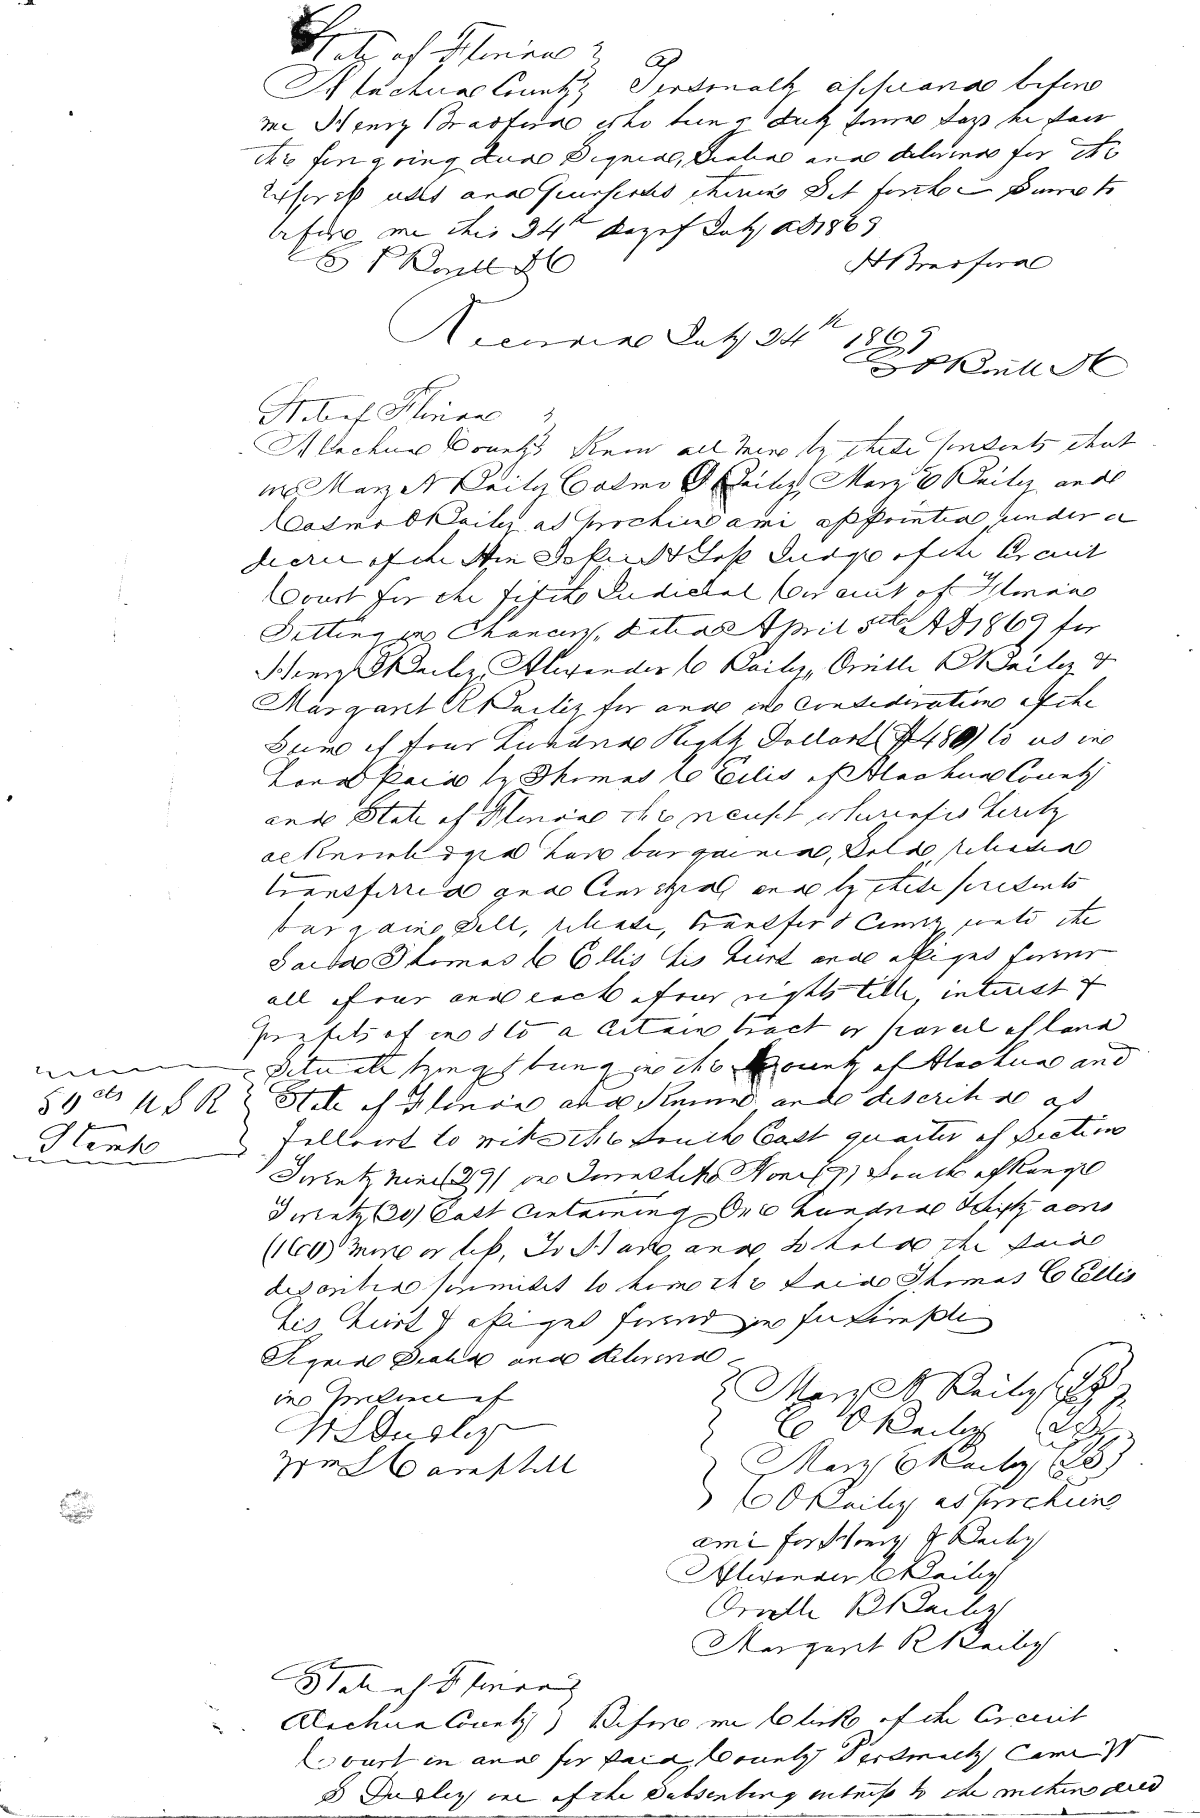 State of Florida }
Alachua County } Personally appeared before
me Henry Bradford who being duly sworn says he saw
the foregoing deed Signed, Sealed and delivered for the
uses and purposes therein Set forth Sworn to
before me this 24th day of July AD 1869
H Bradford
Recorded July 24th 1869
State of Florida }
Alachua County } Know all men by these presents that
we Mary A Baily Cosmo O Baily, Mary E Baily and
Cosmo O Baily as prochien ami appointed under a
decree of the Hon Judge of the Circuit
Court for the fifth Judicial Circuit of Florida
Sitting in Chancery, dated April 5th AD 1869 for
Henry Baily, Alexander C Baily, Orville B Baily &
Margaret R Baily for and in consideration of the
Sum of four hundred Eighty Dollars ($480) to us in
hand paid by Thomas C Ellis of Alachua County
and State of Florida the receipt whereof is hereby
acknowledged have bargained, Sold, released
transferred and Conveyed and by these presents
bargain, Sell, release, transfer & Convey unto the
Said Thomas C Ellis his heirs and assigns forever
all of our and each of our rights title, interest &
profits of in & to a certain tract or parcel of land
Situate lying & being in the County of Alachua and
50 cts U S R
Stamp
State of Florida and Known and described as
follows to wit the South East quarter of Section
Twenty nine (29) in Township Nine (9) South of Range
Twenty (20) East Containing One hundred & Sixty acres
(160) more or less, To Have and to hold the Said
described premises to him the Said Thomas C Ellis
his heirs & assigns forever in fee Simple
Signed Sealed and delivered
in presence of
W S Dudley
Wm S
Mary A Baily (LS)
C O Baily (LS)
Mary E Baily (LS)
C O Baily as prochien
ami for Henry Baily
Alexander C Baily
Orville B Baily
Margaret R Baily
State of Florida }
Alachua County } Before me Clerk of the Circuit
Court in and for Said County Personally Came W
S Dudley one of the Subscribing witness to the within deed